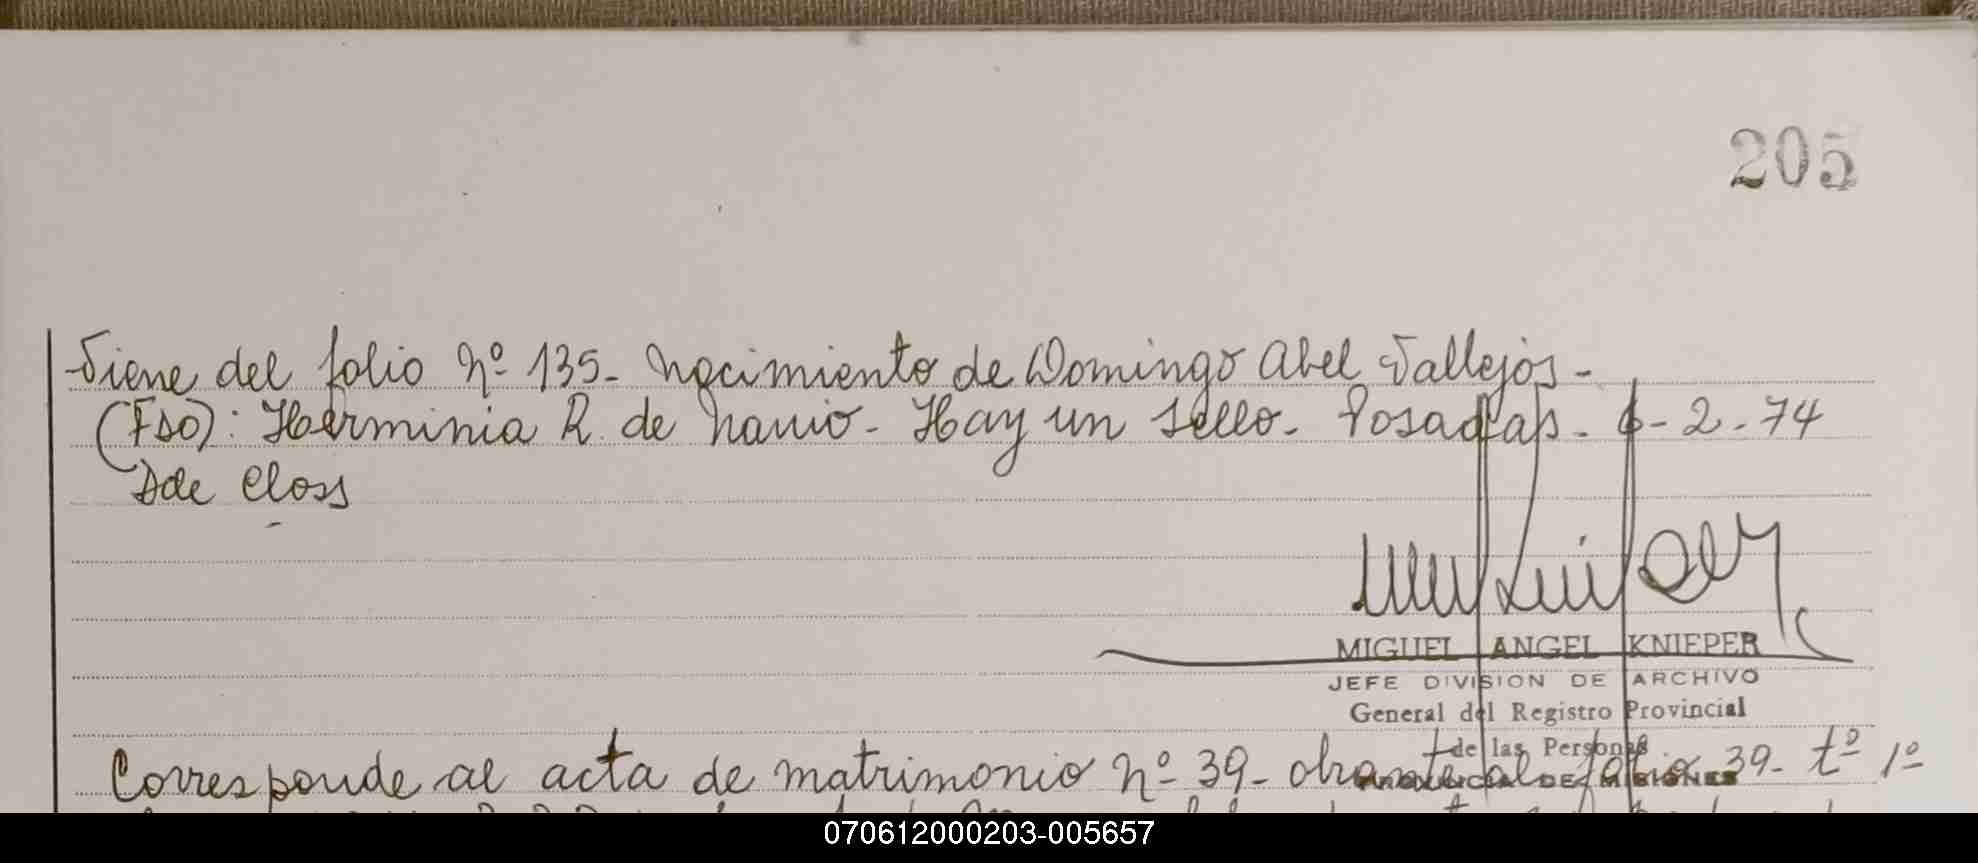 205
Viene del folio nº 135- Nacimiento de Domingo Abel Vallejos-
(Fdo): Herminia R. de Nauio- Hay un sello- Posadas- 6-2-74
Dde Closs
MIGUEL ANGEL KNIEPER
JEFE DIVISION DE ARCHIVO
General del Registro Provincial
de las Personas
PROVINCIA DE MISIONES
Corresponde al acta de matrimonio nº 39- obrante al folio 39- tº 1º
070612000203-005657